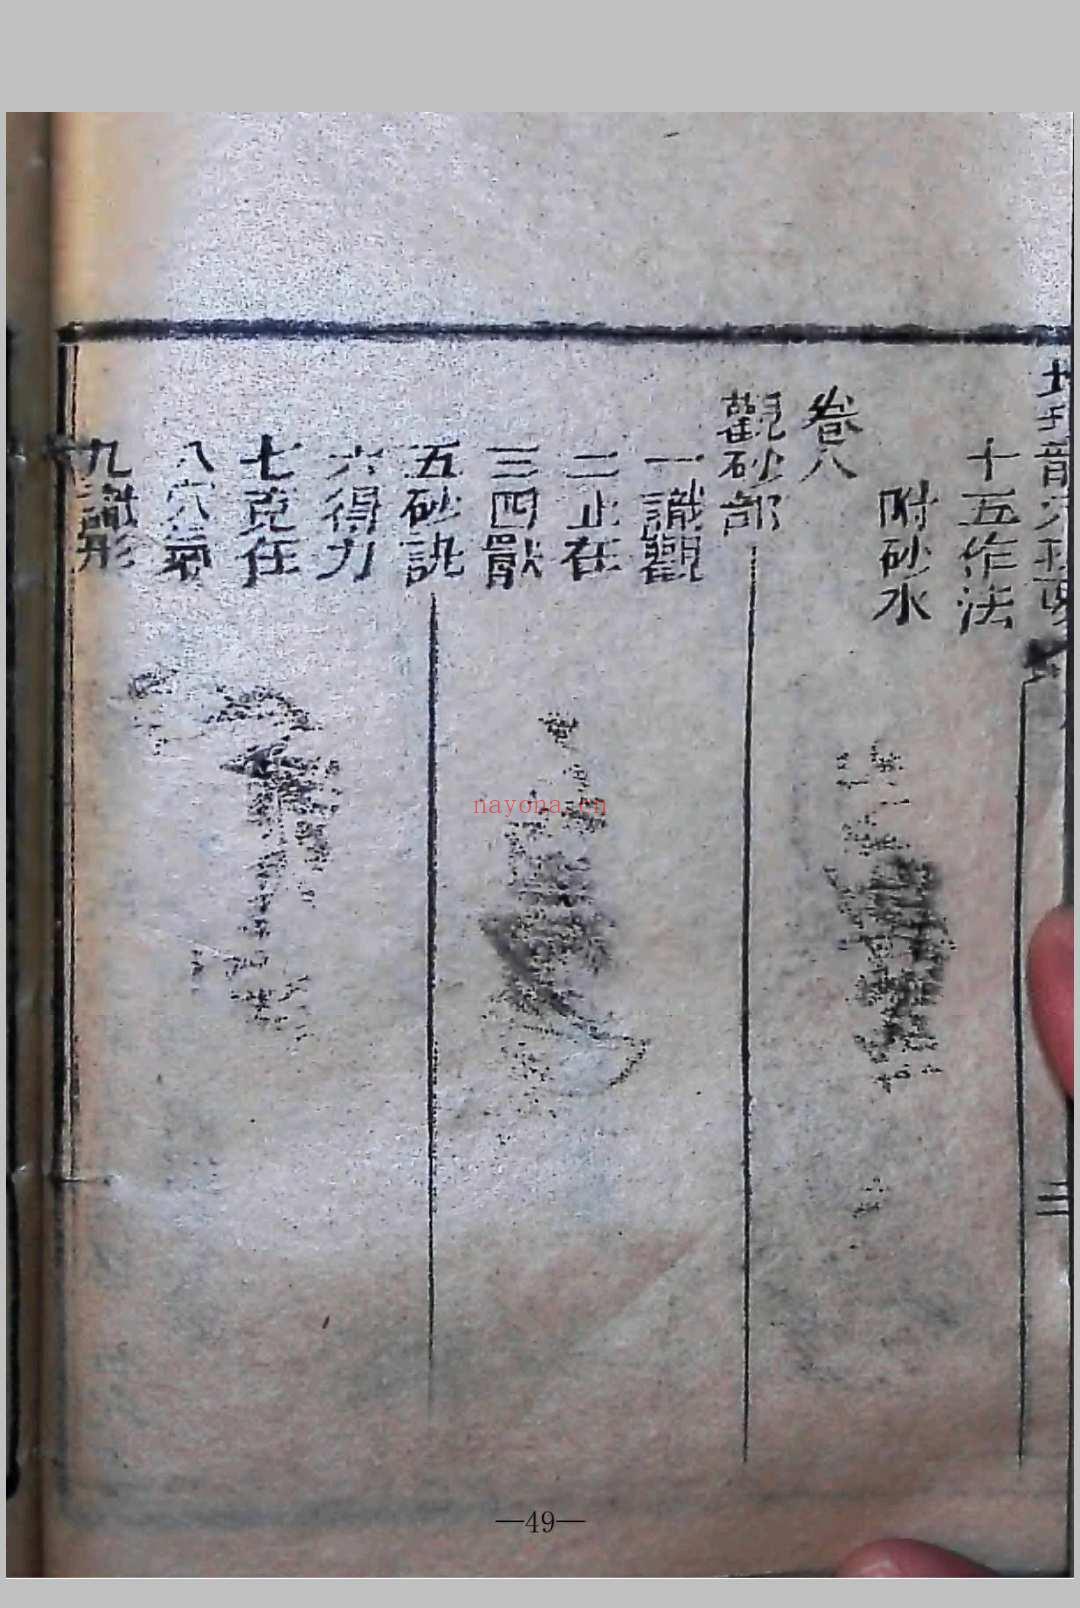 十五作法
附砂水
卷八
觀砂部
一識觀
二止在
三四獸
五砂訣
六得力
七克在
八穴氣
九識形
nayona.cn
—49—